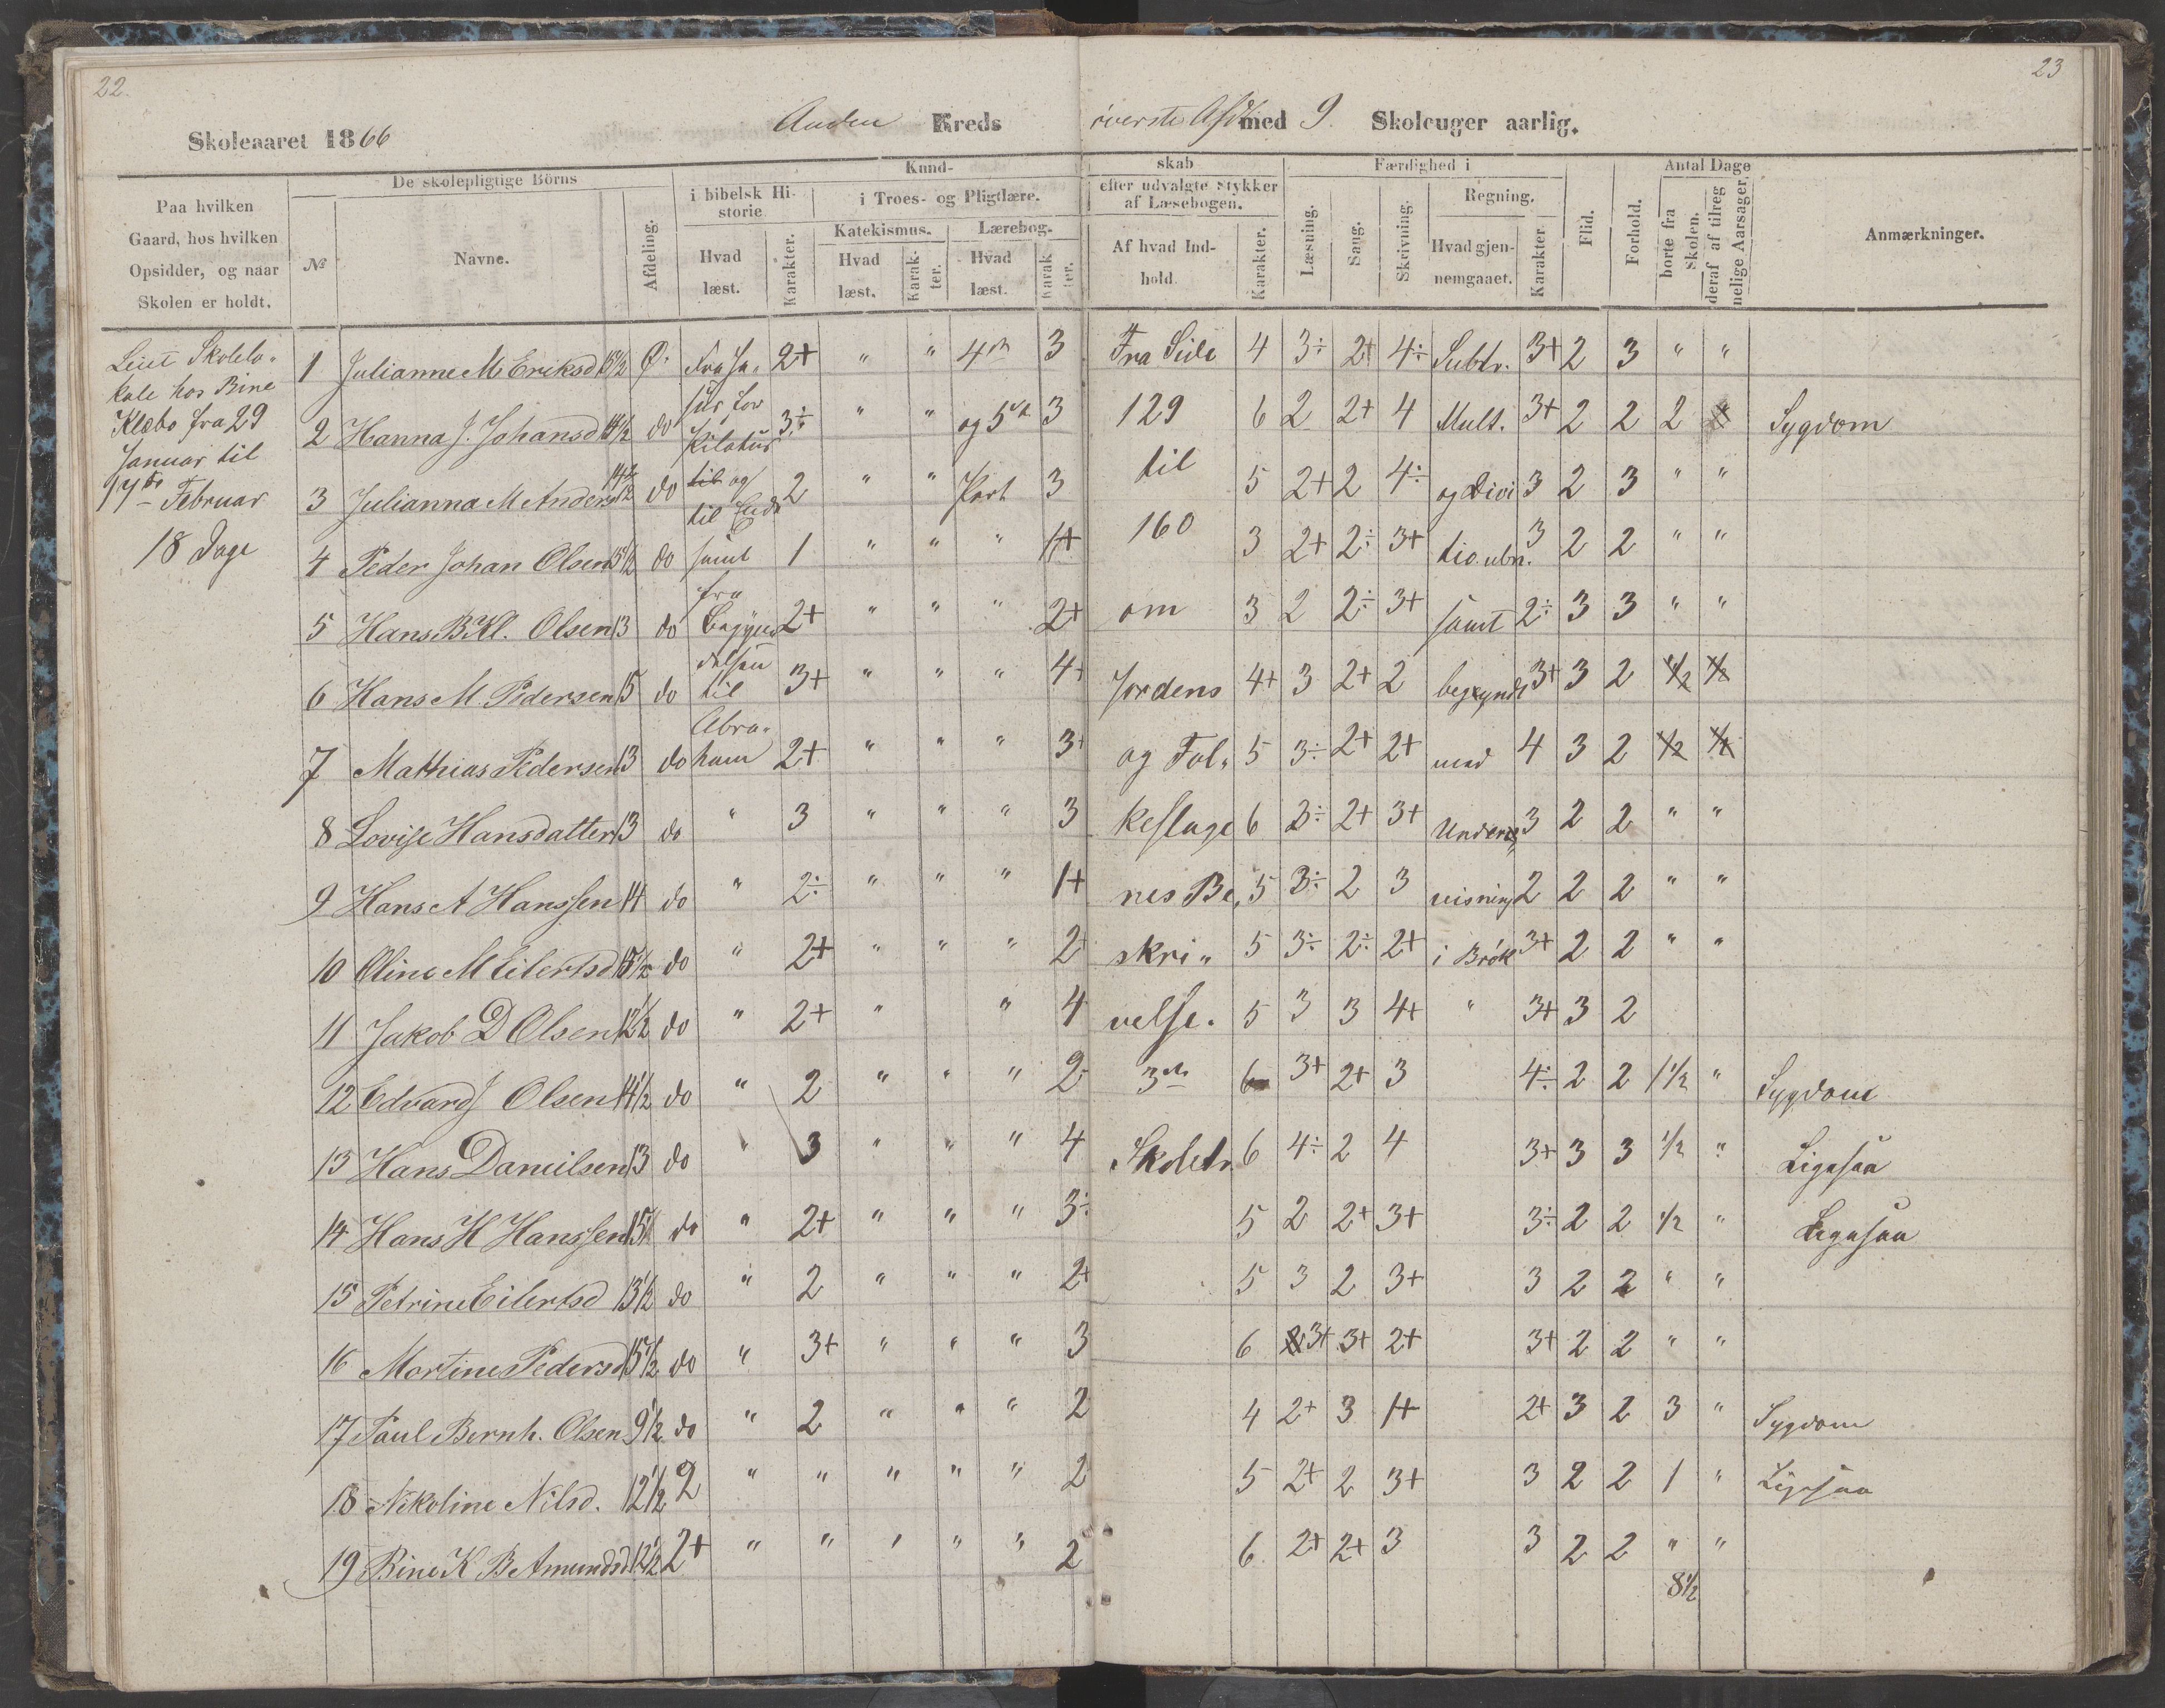 22.
23
Skoleaaret 1866
Anden Kreds øverste Afd med 9 Skoleuger aarlig.
Paa hvilken Gaard, hos hvilken Opsidder, og naar Skolen er holdt.
De skolepligtige Börns
№
Navne.
Afdeling.
Kund-
skab
i bibelsk Historie
Hvad læst.
Karakter.
i Troes- og Pligtlære.
Katekismus.
Hvad læst.
Karakter.
Lærebog.
Hvad læst.
Karakter.
efter udvalgte Stykker af Læsebogen.
Af hvad Indhold.
Karakter.
Færdighed i
Læsning.
Sang.
Skrivning.
Regning.
Hvad gjennemgaaet.
Karakter.
Flid.
Forhold.
Antal Dage
borte fra Skolen.
deraf af tilregnelige Aarsager.
Anmærkninger.
Leiet Skolelo-
kale hos Bine
Klæbo fra 29
Januar til
17de Februar
18 Dage
1 Julianne M Eriksd Ø. 2+ " " 4de 3 Fra Side 4 3÷ 2+ 4÷ Subtr. 3+ 2 3 " "
2 Hanna J. Johansd 14 1/2 do Pilatus 3÷ " " og 5te 3 129 6 2 2+ 4 Mult. 3+ 2 2 2 Sygdom
3 Julianna M Anders 14 1/2 do til og til Ende 2 " " Part 3 til 5 2+ 2 4÷ og Divi 3 2 3 " "
4 Peder Johan Olsen 15 1/2 do samt 1 " " " 1+ 160 3 2+ 2÷ 3+ tio. ubn. 3 2 2 " "
5 Hans B Kl. Olsen 13 do fra Begyn 2+ " " " 2+ om 3 2 2÷ 3+ samt 2÷ 3 3 " "
6 Hans M. Pedersen 15 do delsen til 3+ " " " 4+ Jordens 4+ 3 2+ 2 begyndt 3+ 3 2 1/2 1/2
7 Mathias Pedersen 13 do Abraham 2+ " " " 3+ og Fol- 5 3÷ 2+ 2+ med 4 3 2 1/2 1/2
8 Lovise Hansdatter 13 do " 3 " " " 3 keslage 6 3÷ 2+ 3+ Under 3 2 2 " "
9 Hans A Hanssen 14 do " 2÷ " " " 1+ nes Be 5 3÷ 2 3 visning 2 2 2 " "
10 Oline M Eilertsd 15 1/2 do " 2+ " " " 2+ skri- 5 3÷ 2÷ 2+ i Brøk 3+ 2 2 " "
11 Jakob D Olsen 12 1/2 do " 2+ " " 4 velse. 5 3 3 4+ " 3+ 3 2
12 Edvard J Olsen 14 1/2 do " 2 " " " 2 3die 6 3+ 2+ 3 4÷ 2 2 1 1/2 " Sygdom
13 Hans Danielsen 13 do " 3 " " " 4 Skoletr. 6 4÷ 2 4 3+ 3 3 1/2 " Ligesaa
14 Hans H Hanssen 15 1/2 do " 2+ " " " 3÷ 5 2 2+ 3+ 3÷ 2 2 1/2 " Ligesaa
15 Petrine Eilertsd 13 1/2 do " 2 " " " 2+ 5 3 2 3+ 3 2 2 " "
16 Martine Pedersd 15 1/2 do " 3+ " " " 3 6 3+ 3+ 2+ 3+ 2 2 " "
17 Paul Bernh. Olsen 9 1/2 do " 2 " " " 2 4 2+ 3 1+ 2+ 3 2 3 " Sygdom
18 Nikoline Nilsd. 12 1/2 2 " " " " " 2 5 2+ 2 3+ 3 2 2 1 " Ligesaa
19 Bine K B Amundsd 12 1/2 2+ " " " " " 2 6 2+ 2+ 3 3 2 2 " "
8 1/2